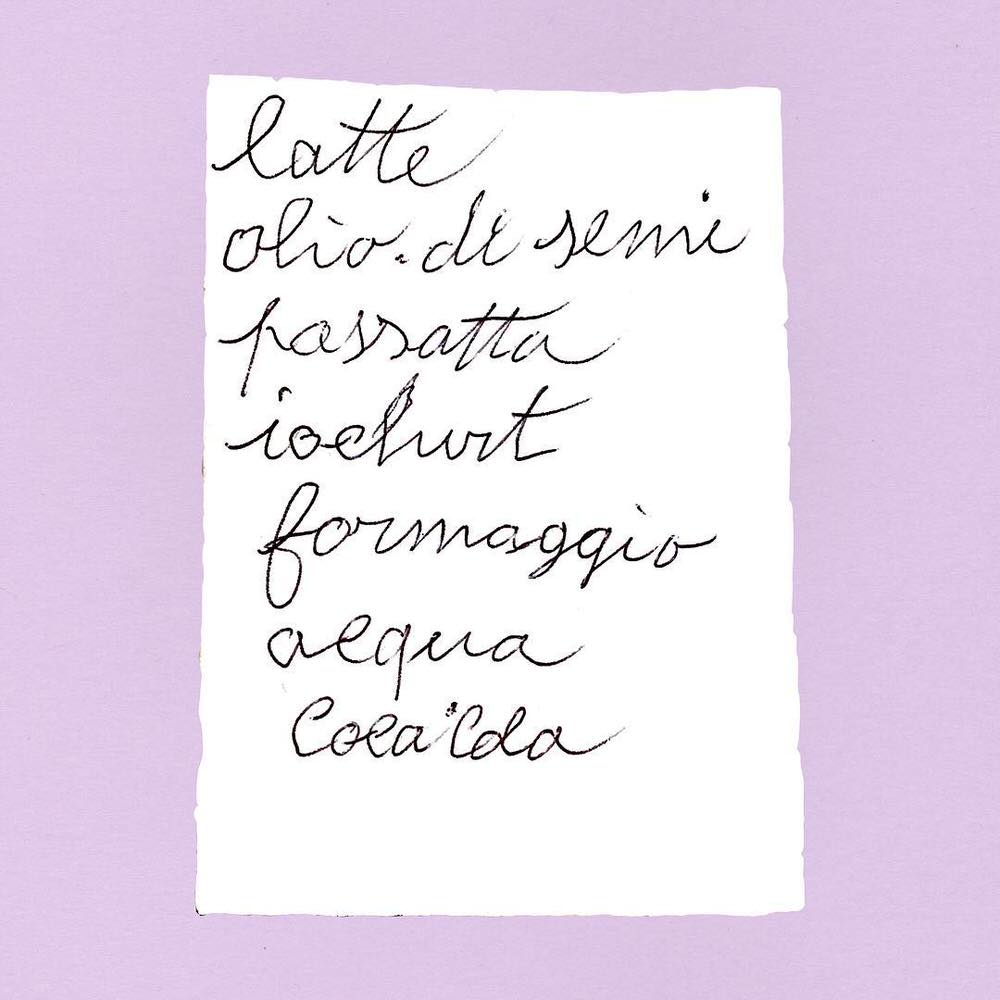 latte
olio. di semi
passatta
iochurt
formaggio
acqua
Coca Cola